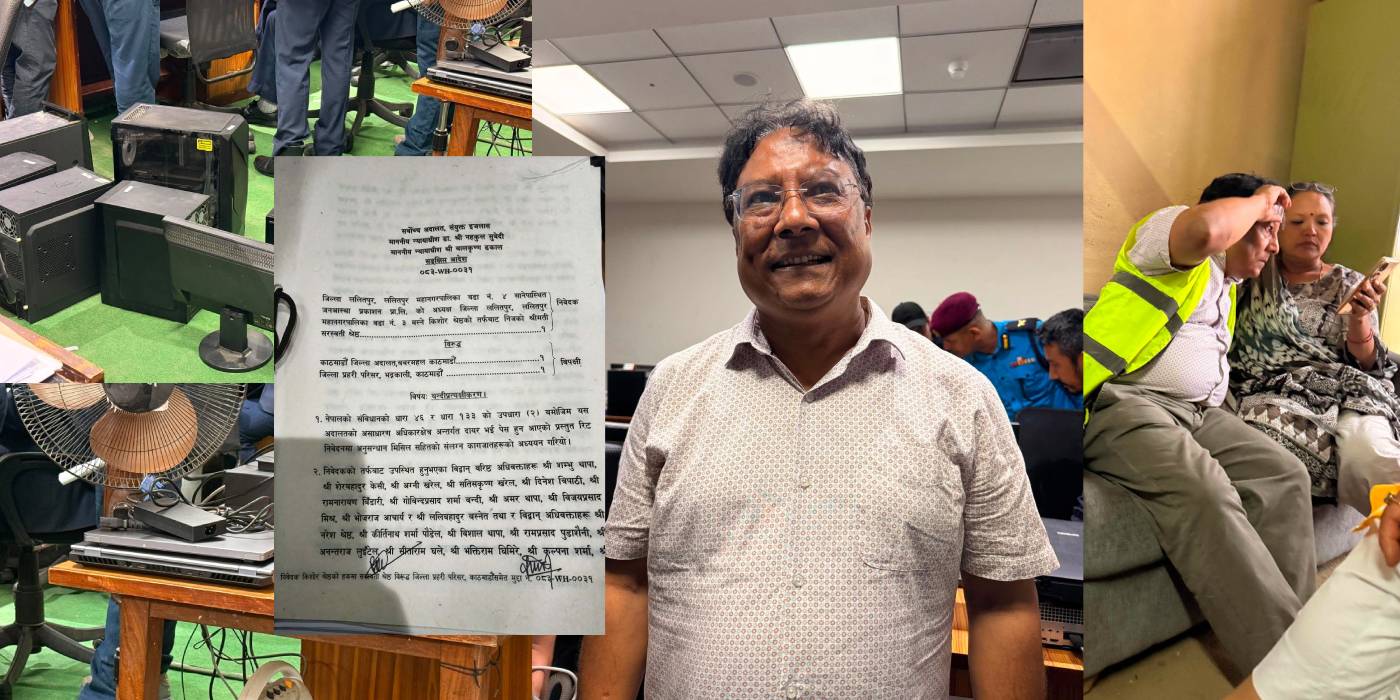 सर्वोच्च अदालत, संयुक्त इजलास
माननीय न्यायाधीश डा. श्री नहकुल सुवेदी
माननीय न्यायाधीश श्री बालकृष्ण ढकाल
संक्षिप्त आदेश
०८३-WH-००३१
जिल्ला ललितपुर, ललितपुर महानगरपालिका वडा नं. ४ सानेपास्थित
जनआस्था प्रकाशन प्रा.लि. को अध्यक्ष जिल्ला ललितपुर, ललितपुर
महानगरपालिका वडा नं. ३ बस्ने किशोर श्रेष्ठको तर्फबाट निजको श्रीमती
सरस्वती श्रेष्ठ...१
निवेदक
विरुद्ध
काठमाडौं जिल्ला अदालत,बबरमहल काठमाडौं...१
जिल्ला प्रहरी परिसर, भद्रकाली, काठमाडौं...१
विपक्षी
विषयः बन्दीप्रत्यक्षीकरण।
१. नेपालको संविधानको धारा ४६ र धारा १३३ को उपधारा (२) बमोजिम यस
अदालतको असाधारण अधिकारक्षेत्र अन्तर्गत दायर भई पेस हुन आएको प्रस्तुत रिट
निवेदनमा अनुसन्धान मिसिल सहितको संलग्न कागजातहरूको अध्ययन गरियो।
२. निवेदकको तर्फबाट उपस्थित हुनुभएका विद्वान् वरिष्ठ अधिवक्ताहरू श्री शम्भु थापा,
श्री शेरबहादुर केसी, श्री अग्नी खरेल, श्री सतिसकृष्ण खरेल, श्री दिनेश त्रिपाठी, श्री
रामनारायण बिडारी, श्री गोविन्दप्रसाद शर्मा बन्दी, श्री अमर थापा, श्री विजयप्रसाद
मिश्र, श्री भोजराज आचार्य र श्री सलिबहादुर बस्नेत तथा र विद्वान् अधिवक्ताहरू श्री
नरेश श्रेष्ठ, श्री कीर्तिनाथ शर्मा पौडेल, श्री विशाल थापा, श्री रामप्रसाद पुडासैनी, श्री
अनन्तराज लुइँटेल, श्री सीताराम घले, श्री भक्तिराम घिमिरे, श्री कल्पना शर्मा,
निवेदक किशोर श्रेष्ठको हकमा सरस्वती श्रेष्ठ विरूद्ध जिल्ला प्रहरी परिसर, काठमाडौंसमेत मुद्दा नं. ०८३-WH-००३१